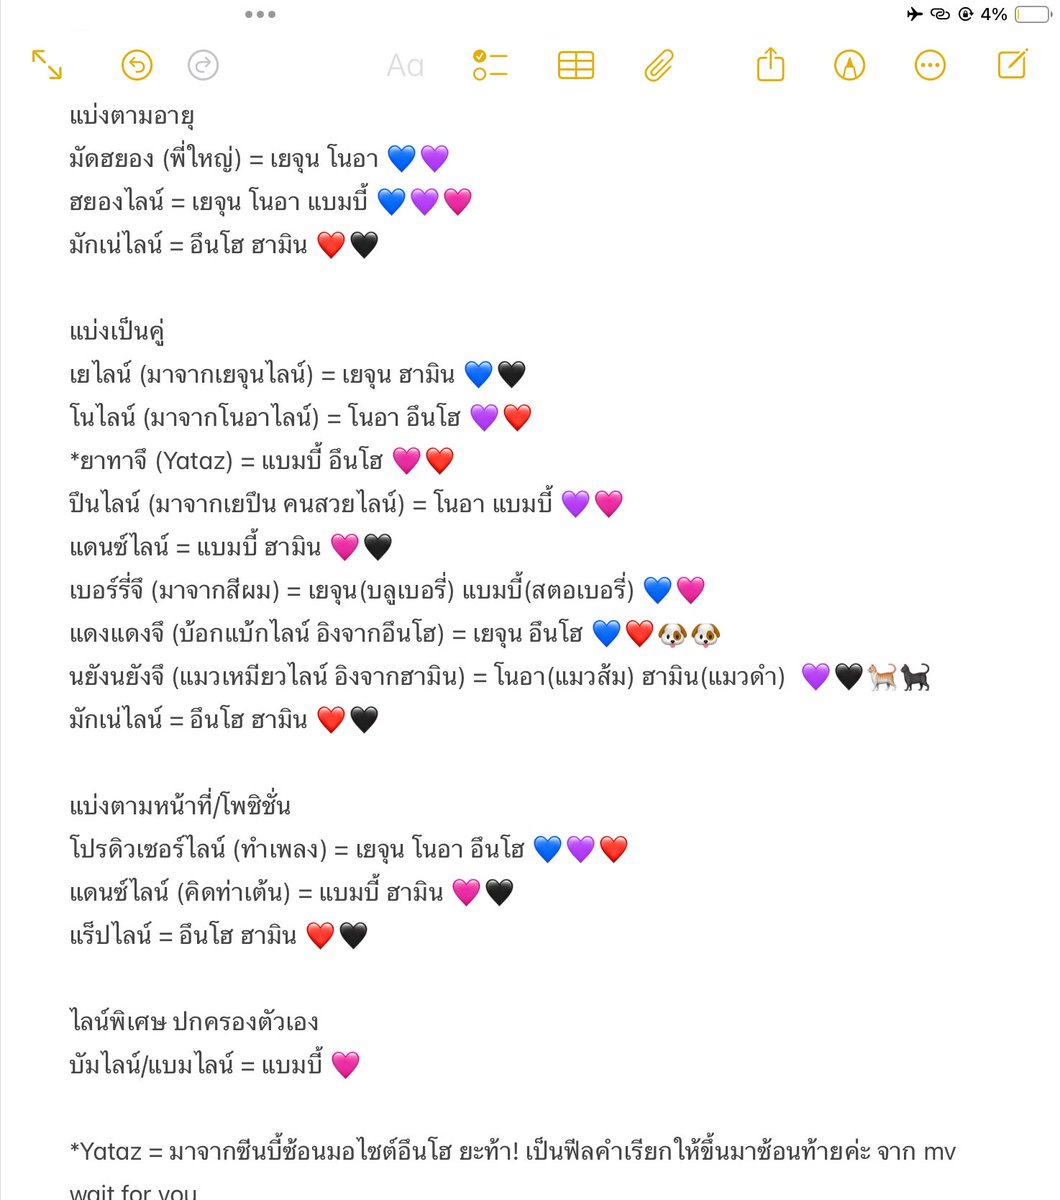 4%
Aa
แบ่งตามอายุ
มัดฮยอง (พี่ใหญ่) = เยจุน โนอา 💙💜
ฮยองไลน์ = เยจุน โนอา แบมบี้ 💙💜🩷
มักเน่ไลน์ = อึนโฮ ฮามิน ❤️🖤
แบ่งเป็นคู่
เยไลน์ (มาจากเยจุนไลน์) = เยจุน ฮามิน 💙🖤
โนไลน์ (มาจากโนอาไลน์) = โนอา อึนโฮ 💜❤️
*ยาทาจึ (Yataz) = แบมบี้ อึนโฮ 🩷❤️
ปึนไลน์ (มาจากเยปึน คนสวยไลน์) = โนอา แบมบี้ 💜🩷
แดนซ์ไลน์ = แบมบี้ ฮามิน 🩷🖤
เบอร์รี่จึ (มาจากสีผม) = เยจุน(บลูเบอรี่) แบมบี้(สตอเบอรี่) 💙🩷
แดงแดงจึ (บ้อกแบ้กไลน์ อิงจากอึนโฮ) = เยจุน อึนโฮ 💙❤️🐶🐶
นยังนยังจึ (แมวเหมียวไลน์ อิงจากฮามิน) = โนอา(แมวส้ม) ฮามิน(แมวดำ) 💜🖤🐈🐈‍⬛
มักเน่ไลน์ = อึนโฮ ฮามิน ❤️🖤
แบ่งตามหน้าที่/โพซิชั่น
โปรดิวเซอร์ไลน์ (ทำเพลง) = เยจุน โนอา อึนโฮ 💙💜❤️
แดนซ์ไลน์ (คิดท่าเต้น) = แบมบี้ ฮามิน 🩷🖤
แร็ปไลน์ = อึนโฮ ฮามิน ❤️🖤
ไลน์พิเศษ ปกครองตัวเอง
บัมไลน์/แบมไลน์ = แบมบี้ 🩷
*Yataz = มาจากซีนบี้ซ้อนมอไซต์อึนโฮ ยะท้า! เป็นฟีลคำเรียกให้ขึ้นมาซ้อนท้ายค่ะ จาก mv
wait for you